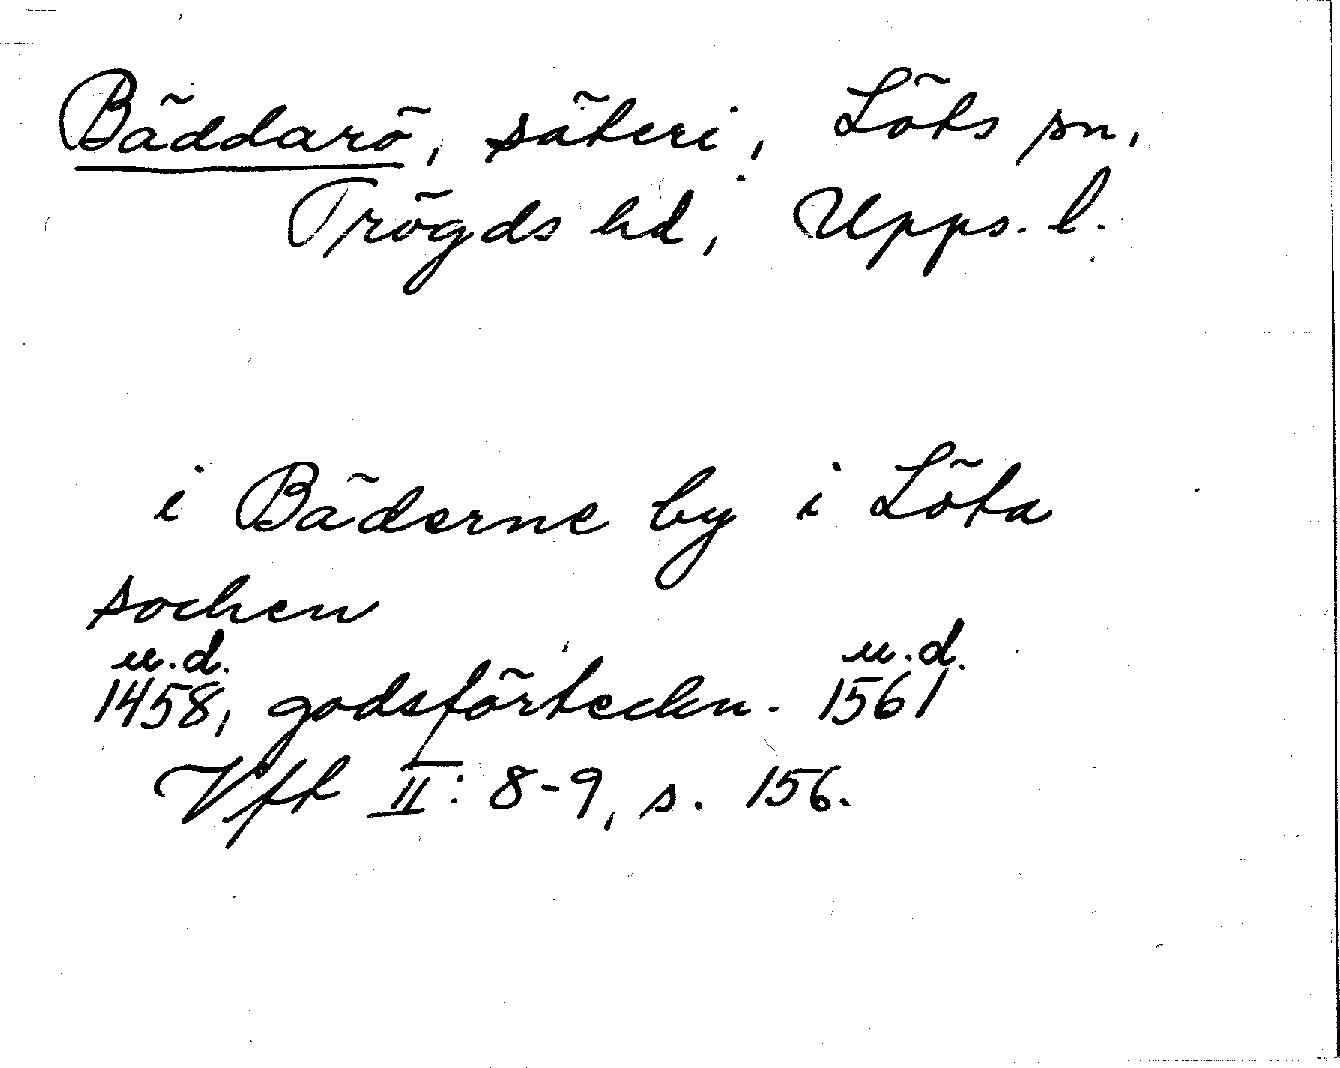 Bäddarö, säteri, Löts sn,
Trögds hd, Upps. l.
i Bäderne by i Löta
sochen
u.d. u.d.
1458, godsförteckn. 1561
Vft II: 8-9, s. 156.